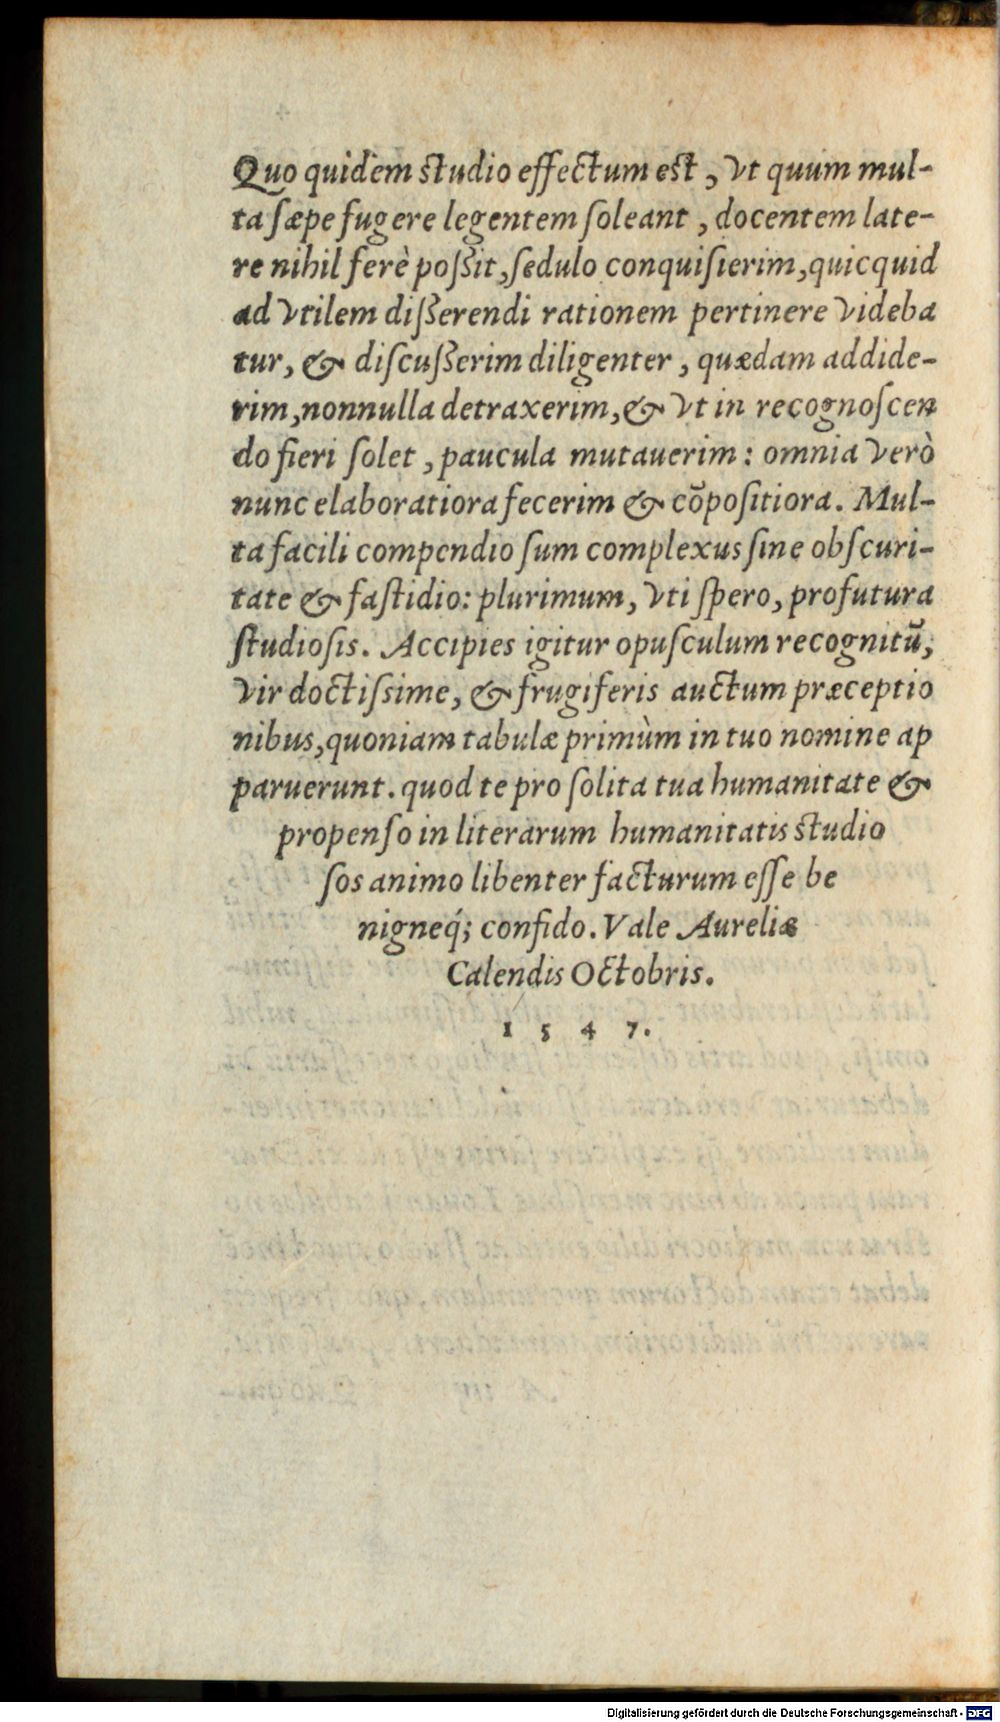 Quo quidem studio effectum est, vt quum mul-
ta sæpe fugere legentem soleant, docentem late-
re nihil ferè poßit, sedulo conquisierim, quicquid
ad vtilem dißerendi rationem pertinere videba
tur, & discußerim diligenter, quædam addide-
rim, nonnulla detraxerim, & vt in recognoscen
do fieri solet, paucula mutauerim: omnia verò
nunc elaboratiora fecerim & cõpositiora. Mul-
ta facili compendio sum complexus sine obscuri-
tate & fastidio: plurimum, vti spero, profutura
studiosis. Accipies igitur opusculum recognitũ,
vir doctissime, & frugiferis auctum præceptio
nibus, quoniam tabulæ primùm in tuo nomine ap
paruerunt. quod te pro solita tua humanitate &
propenso in literarum humanitatis studio
sos animo libenter facturum esse be
nigneq́; confido. Vale Aureliæ
Calendis Octobris.
1 5 4 7.
Digitalisierung gefördert durch die Deutsche Forschungsgemeinschaft - DFG